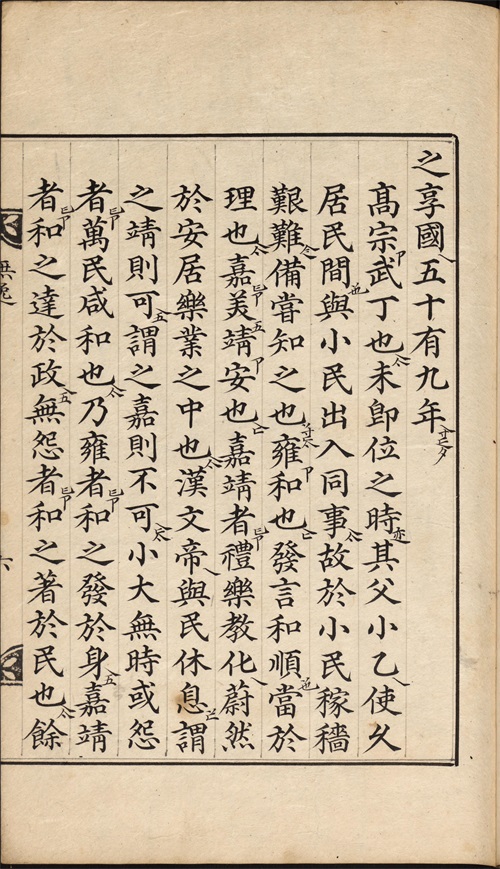 之享國五十有九年
髙宗武丁也未卽位之時其父小乙使久
居民間與小民出入同事故於小民稼穡
艱難備嘗知之也雍和也發言和順當於
理也嘉美靖安也嘉靖者禮樂教化蔚然
於安居樂業之中也漢文帝與民休息謂
之靖則可謂之嘉則不可小大無時或怨
者萬民咸和也乃雍者和之發於身嘉靖
者和之達於政無怨者和之著於民也餘
無逸
六